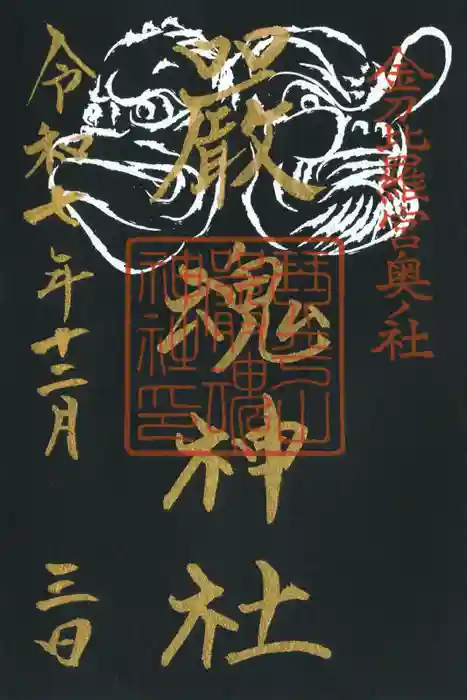 金刀比羅宮奥ノ社
嚴魂神社
令和七年十二月三日